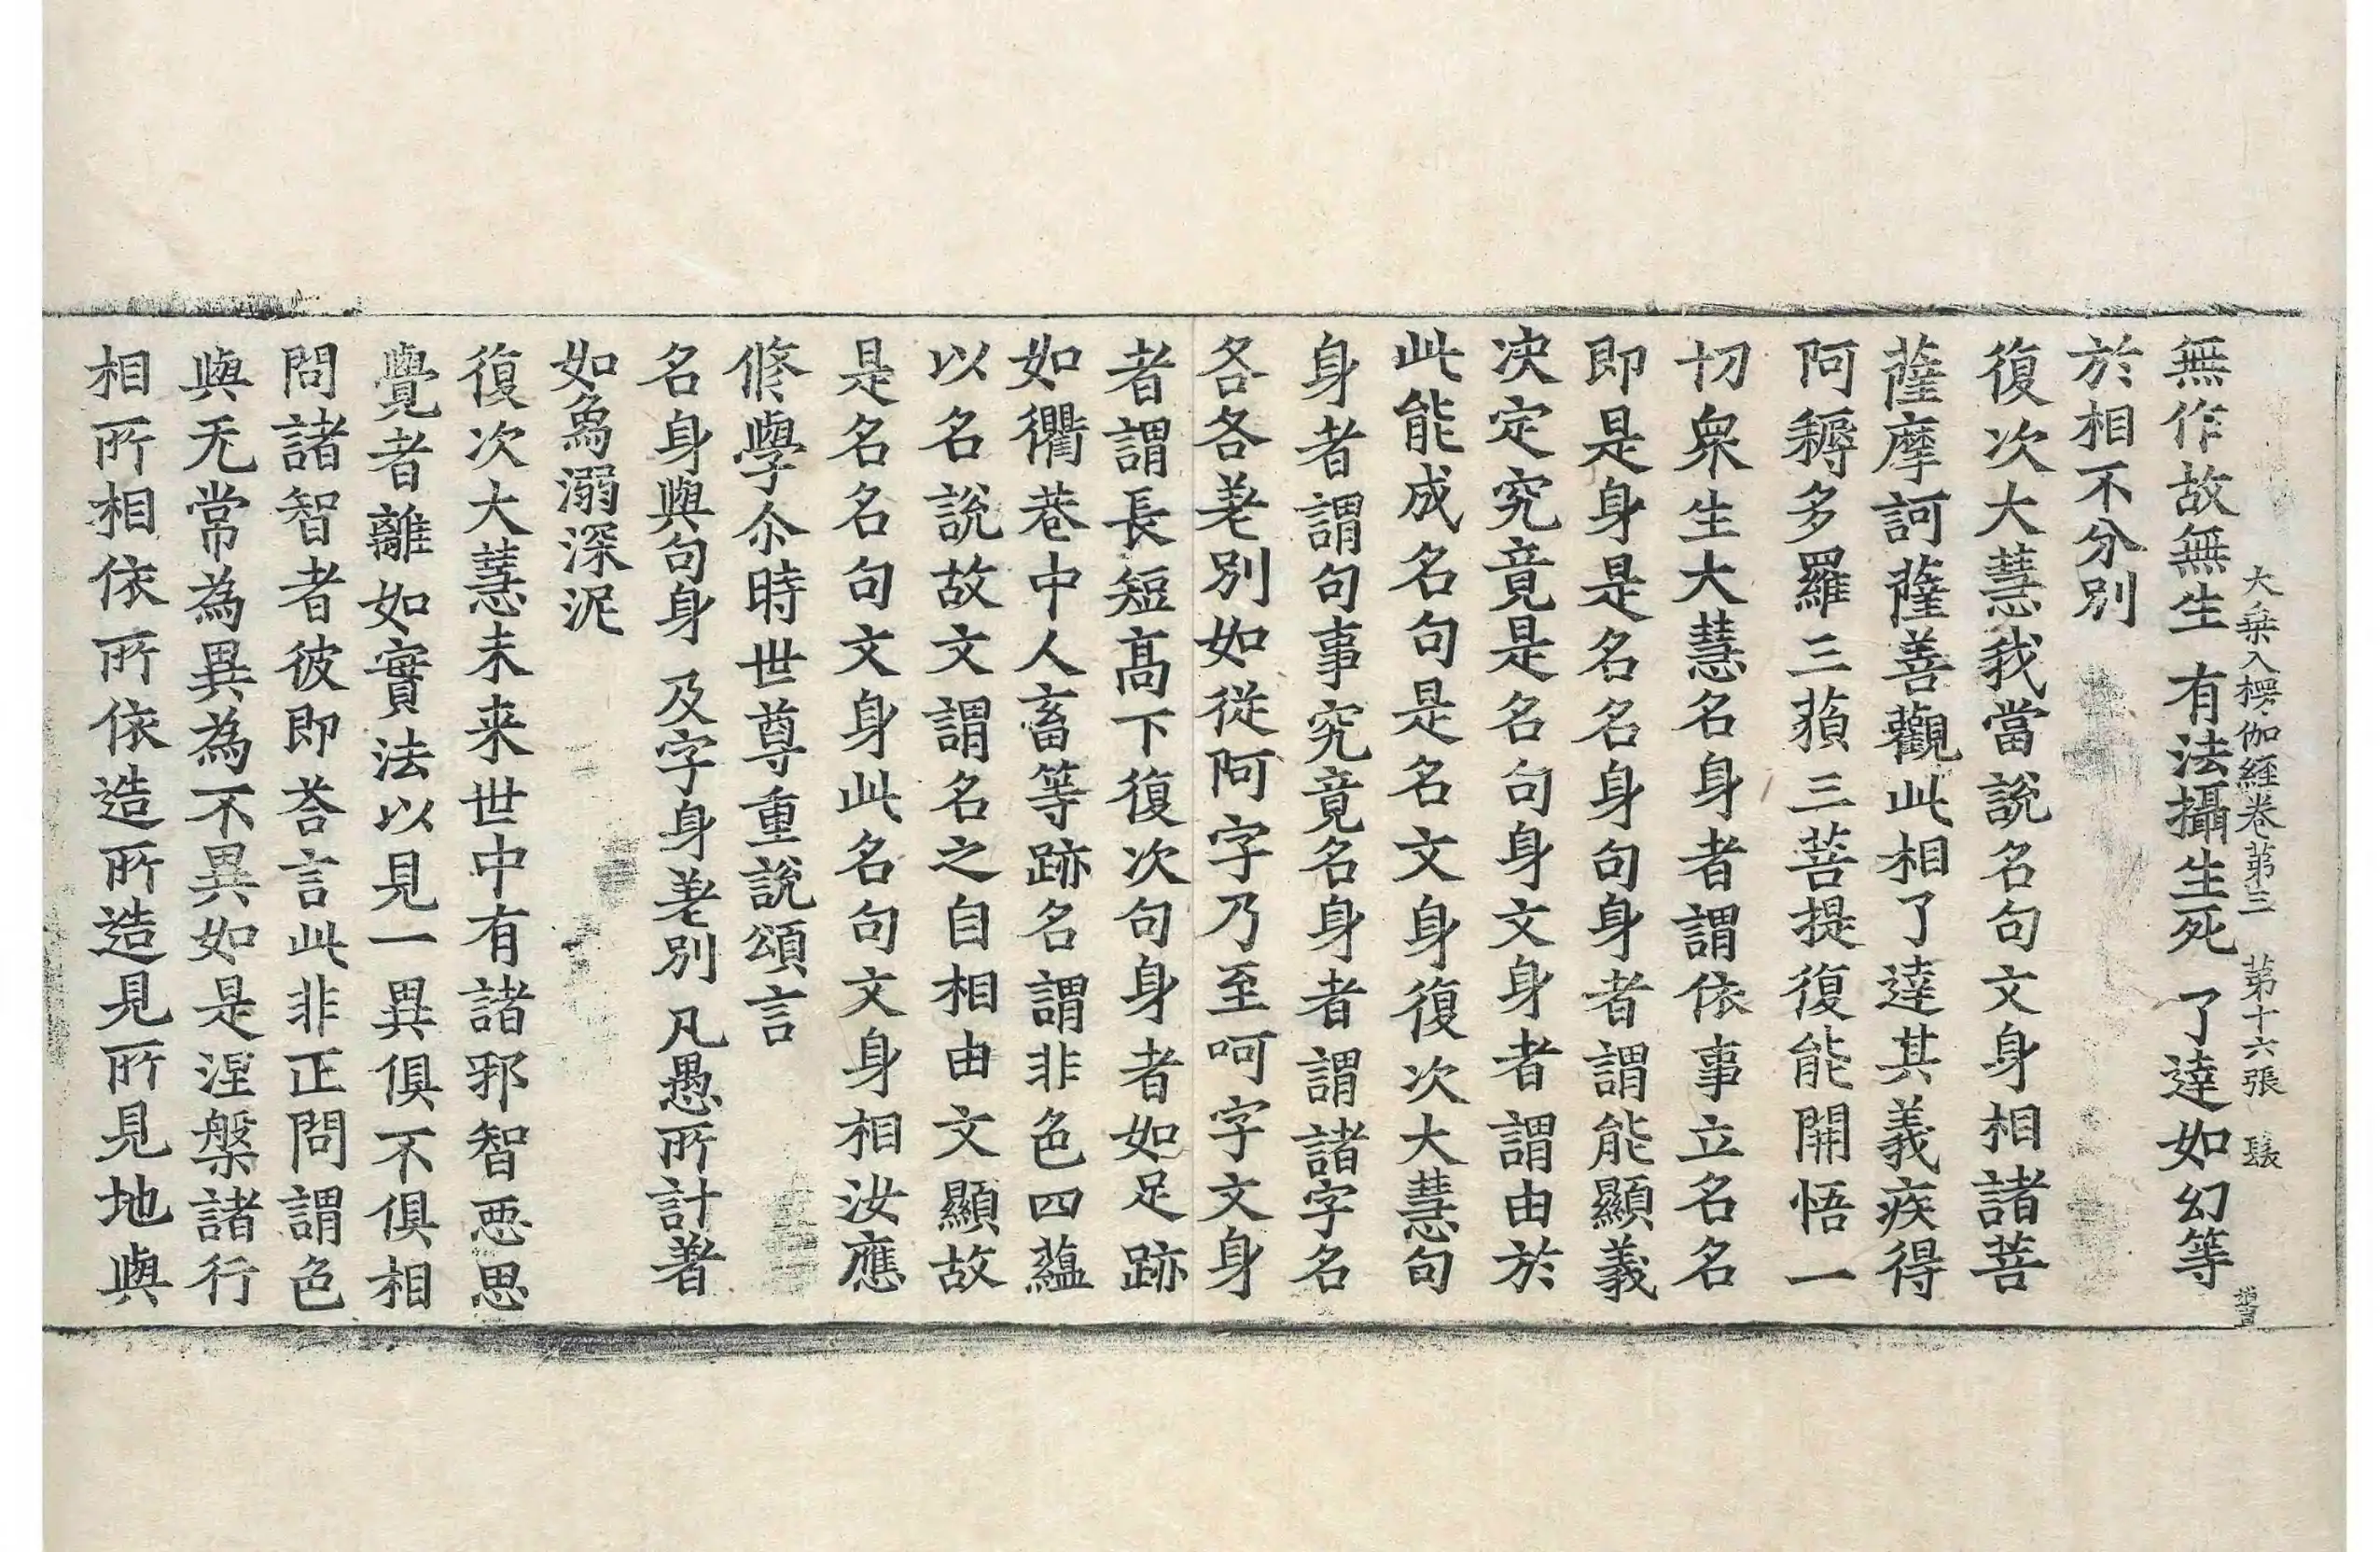 大乗入楞伽経卷第三　第十六張
無作故無生　有法攝生死　了達如幻等
於相不分別
復次大慧我當說名句文身相諸菩
薩摩訶薩善觀此相了達其義疾得
阿耨多羅三藐三菩提復能開悟一
切衆生大慧名身者謂依事立名名
即是身是名名身句身者謂能顯義
决定究竟是名句身文身者謂由於
此能成名句是名文身復次大慧句
身者謂句事究竟名身者謂諸字名
各各差別如從阿字乃至呵字文身
者謂長短髙下復次句身者如足跡
如衢巷中人畜等跡名謂非色四蘊
以名說故文謂名之自相由文顯故
是名名句文身此名句文身相汝應
修學尒時世尊重說頌言
名身與句身　及字身差別　凡愚所計著
如象溺深泥
復次大慧未来世中有諸邪智惡思
覺者離如實法以見一異俱不俱相
問諸智者彼即荅言此非正問謂色
與无常為異為不異如是涅槃諸行
相所相依所依造所造見所見地與